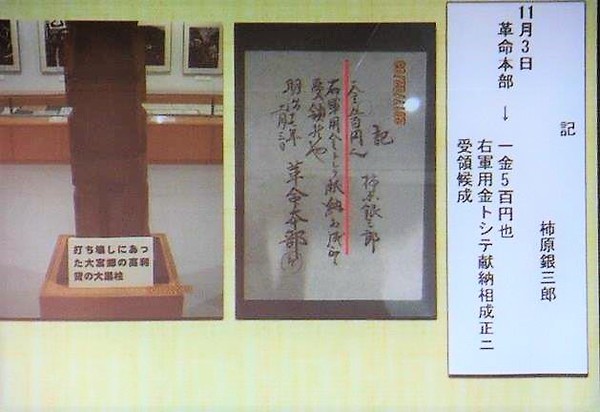 記
柿原銀三郎
11月3日
革命本部 ↓ 一金5百円也
右軍用金トシテ献納相成正ニ
受領候成
記
柿原銀三郎
一金五百円也
右軍用金トシテ献納相成正ニ
受領候也
明治
月三日
革命本部
打ち壊しにあっ
た大宮郷の高利
貸の大黒柱